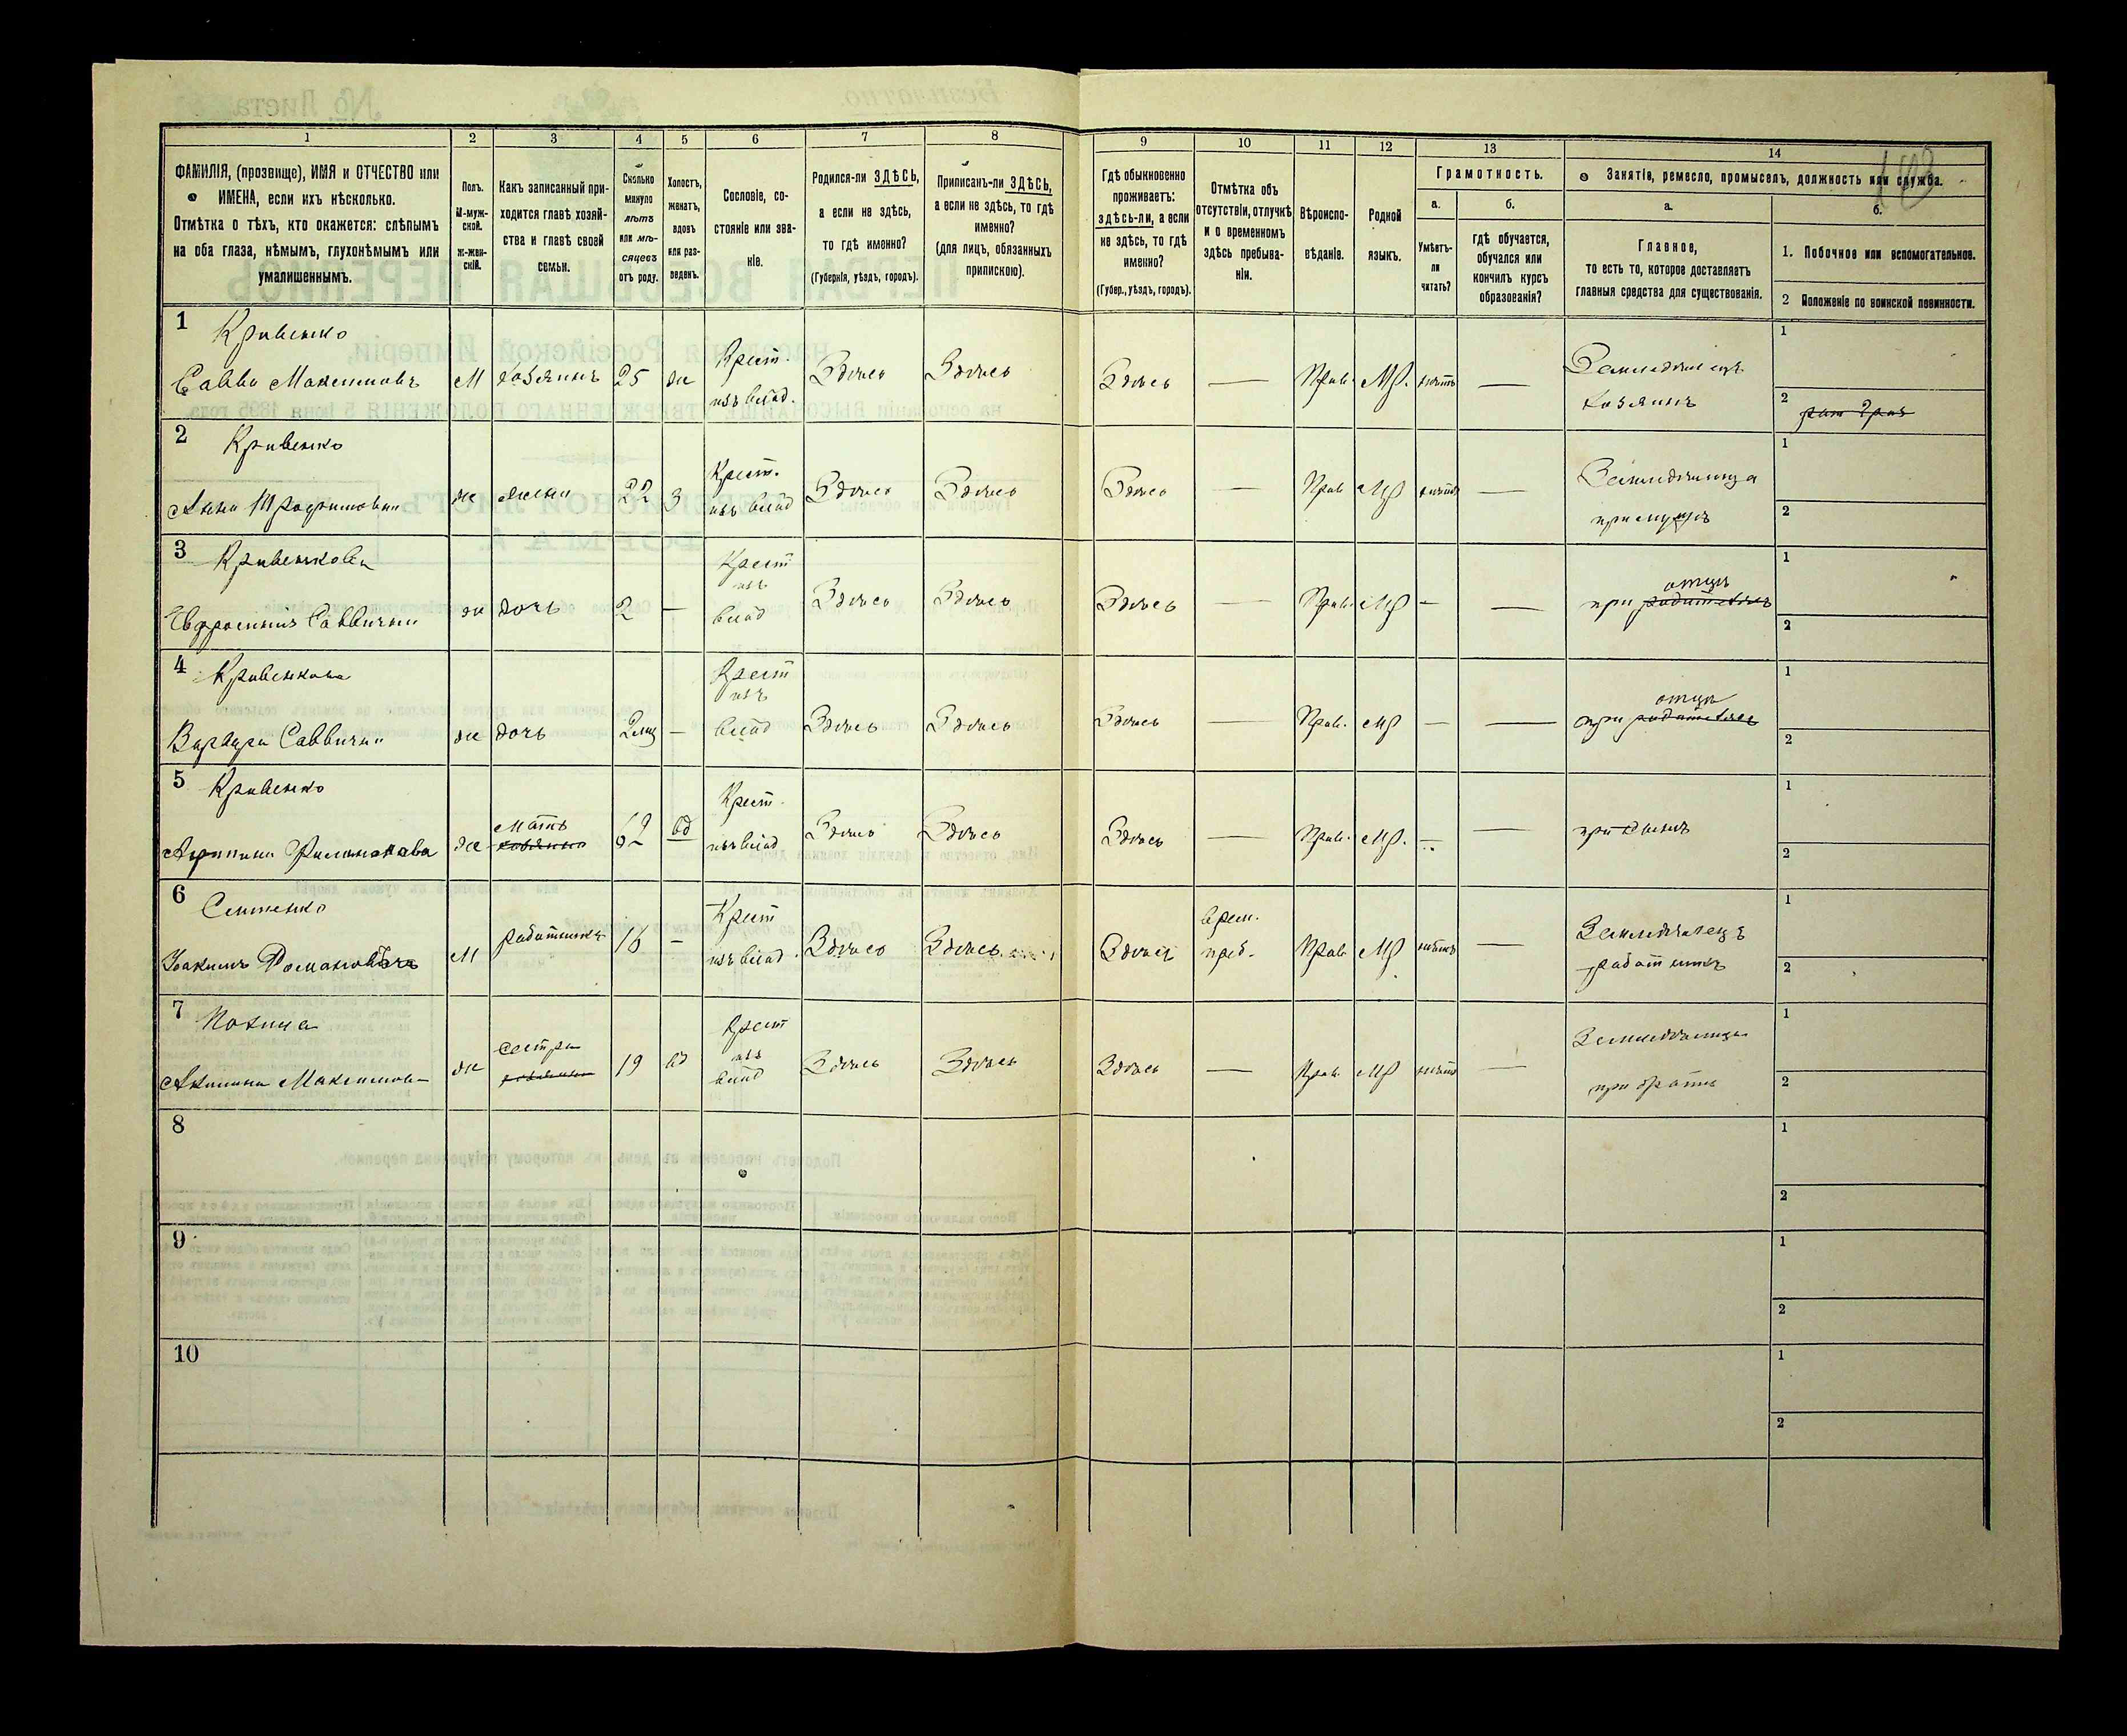 103
1 2 3 4 5 6 7 8 9 10 11 12 13 14
ФАМИЛІЯ, (прозвище), ИМЯ и ОТЧЕСТВО или
ИМЕНА, если ихъ нѣсколько.
Отмѣтка о тѣхъ, кто окажется: слѣпымъ
на оба глаза, нѣмымъ, глухонѣмымъ или
умалишеннымъ.
Полъ.
М-муж-
ской.
Ж-жен-
скій.
Какъ записанный при-
ходится главѣ хозяй-
ства и главѣ своей
семьи.
Сколько
минуло
лѣтъ
или мѣ-
сяцевъ
отъ роду.
Холостъ,
женатъ,
вдовъ
или раз-
веденъ.
Сословіе, со-
стояніе или зва-
ніе.
Родился-ли ЗДѢСЬ,
а если не здѣсь,
то гдѣ именно?
(Губернія, уѣздъ, городъ).
Приписанъ-ли ЗДѢСЬ,
а если не здѣсь, то гдѣ
именно?
(для лицъ, обязанныхъ
припискою).
Гдѣ обыкновенно
проживаетъ:
здѣсь-ли, а если
не здѣсь, то гдѣ
именно?
(Губер., уѣздъ, городъ).
Отмѣтка объ
отсутствіи, отлучкѣ
и о временномъ
здѣсь пребыва-
ніи.
Вѣроиспо-
вѣданіе.
Родной
языкъ.
Грамотность.
а.
Умѣетъ-
ли
читать?
б.
гдѣ обучается,
обучался или
кончилъ курсъ
образованія?
Занятіе, ремесло, промыселъ, должность или служба.
а.
Главное,
то есть то, которое доставляетъ
главныя средства для существованія.
б.
1. Побочное или вспомогательное.
2 Положеніе по воинской повинности.
1 Кривенко
Савва Максимовъ М хозяинъ 25 ж Крест. изъ влад. Здѣсь Здѣсь Здѣсь — Прав. Мр. нѣтъ — Земледѣлецъ хозяинъ 1 2
2 Кривенко
Анна ж жена 22 з Крест. изъ влад Здѣсь Здѣсь Здѣсь — Прав Мр нѣтъ — Земледѣлица при мужѣ 1 2
3 Кривенкова
Евфросинія Саввична ж дочь 2 — Крест изъ влад Здѣсь Здѣсь Здѣсь — Прав. Мр — — при родителяхъ отцѣ 1 2
4 Кривенкова
Варвара Саввична ж дочь 2 мц — Крест изъ влад Здѣсь Здѣсь Здѣсь — Прав. Мр — — при родителяхъ отцѣ 1 2
5 Кривенко
Агрипина Филимонова ж мать хозяина 62 вд Крест. изъ влад Здѣсь Здѣсь Здѣсь — Прав. Мр. — — при сынѣ 1 2
6
Іоакимъ Романовичъ М работникъ 18 — Крест изъ влад. Здѣсь Здѣсь Здѣсь врем. преб. Прав Мр нѣтъ — Земледѣлецъ работникъ 1 2
7
Акилина Максимова ж сестра хозяина 19 вд Крест изъ влад Здѣсь Здѣсь Здѣсь — Прав. Мр нѣтъ — Земледѣлица при братѣ 1 2
8 1 2
9 1 2
10 1 2